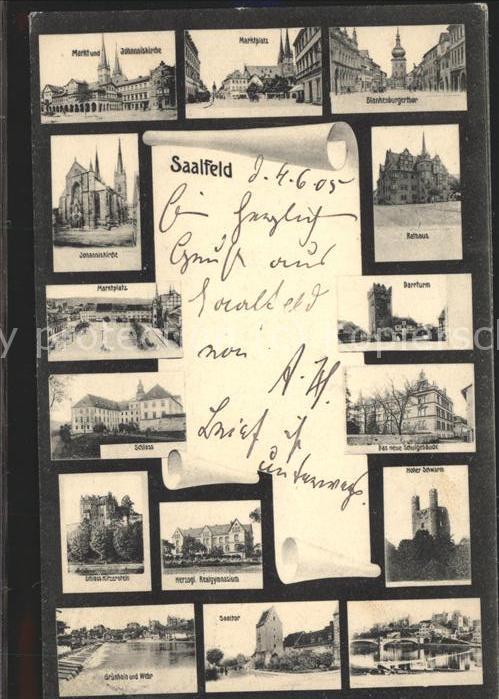 Markt und Johanniskirche
Marktplatz
Blankenburgerthor
Johanniskirche
Saalfeld d. 4.6.05
Ein herzlich
Gruß aus
Saalfeld
von A. H.
Brief ist
unterwegs.
Rathaus
Marktplatz
Darrturm
Schloss
Das neue Schulgebäude
Schloss Kitzerstein
Herzogl. Realgymnasium
Hoher Schwarm
Grünhain und Wehr
Saaltor